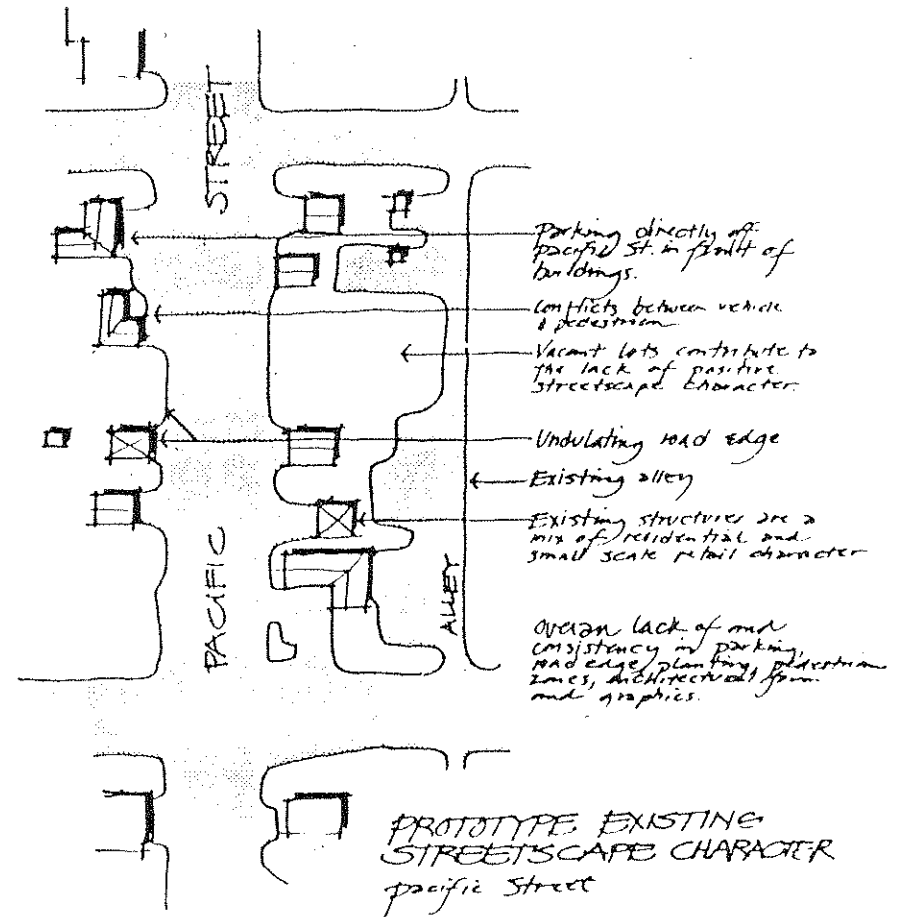 STREET
Parking directly off
pacific St. in front of
buildings.
Conflicts between vehicle
& pedestrian
Vacant lots contribute to
the lack of positive
streetscape character.
Undulating road edge
Existing alley
Existing structures are a
mix of residential and
small scale retail character
PACIFIC
ALLEY
Overall lack of
consistency in parking,
road edge, planting, pedestrian
zones, architectural form
and graphics.
PROTOTYPE EXISTING
STREETSCAPE CHARACTER
pacific Street